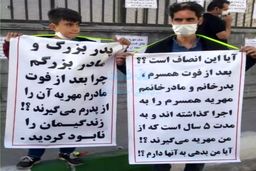 آیا این انصاف است ؟؟
بعد از فوت همسرم ,
پدرخانم و مادرخانمم
مهریه همسرم را به
اجرا گذاشته اند و به
مدت ۵ سال است که از
من مهریه می‌گیرند ؟!
آیا من بدهی به آنها دارم ؟!
پدر بزرگ و
مادر بزرگم
چرا بعد از فوت
مادرم مهریه آن را
از پدرم می‌گیرند ؟!
زندگیمان را
نابود کردید.